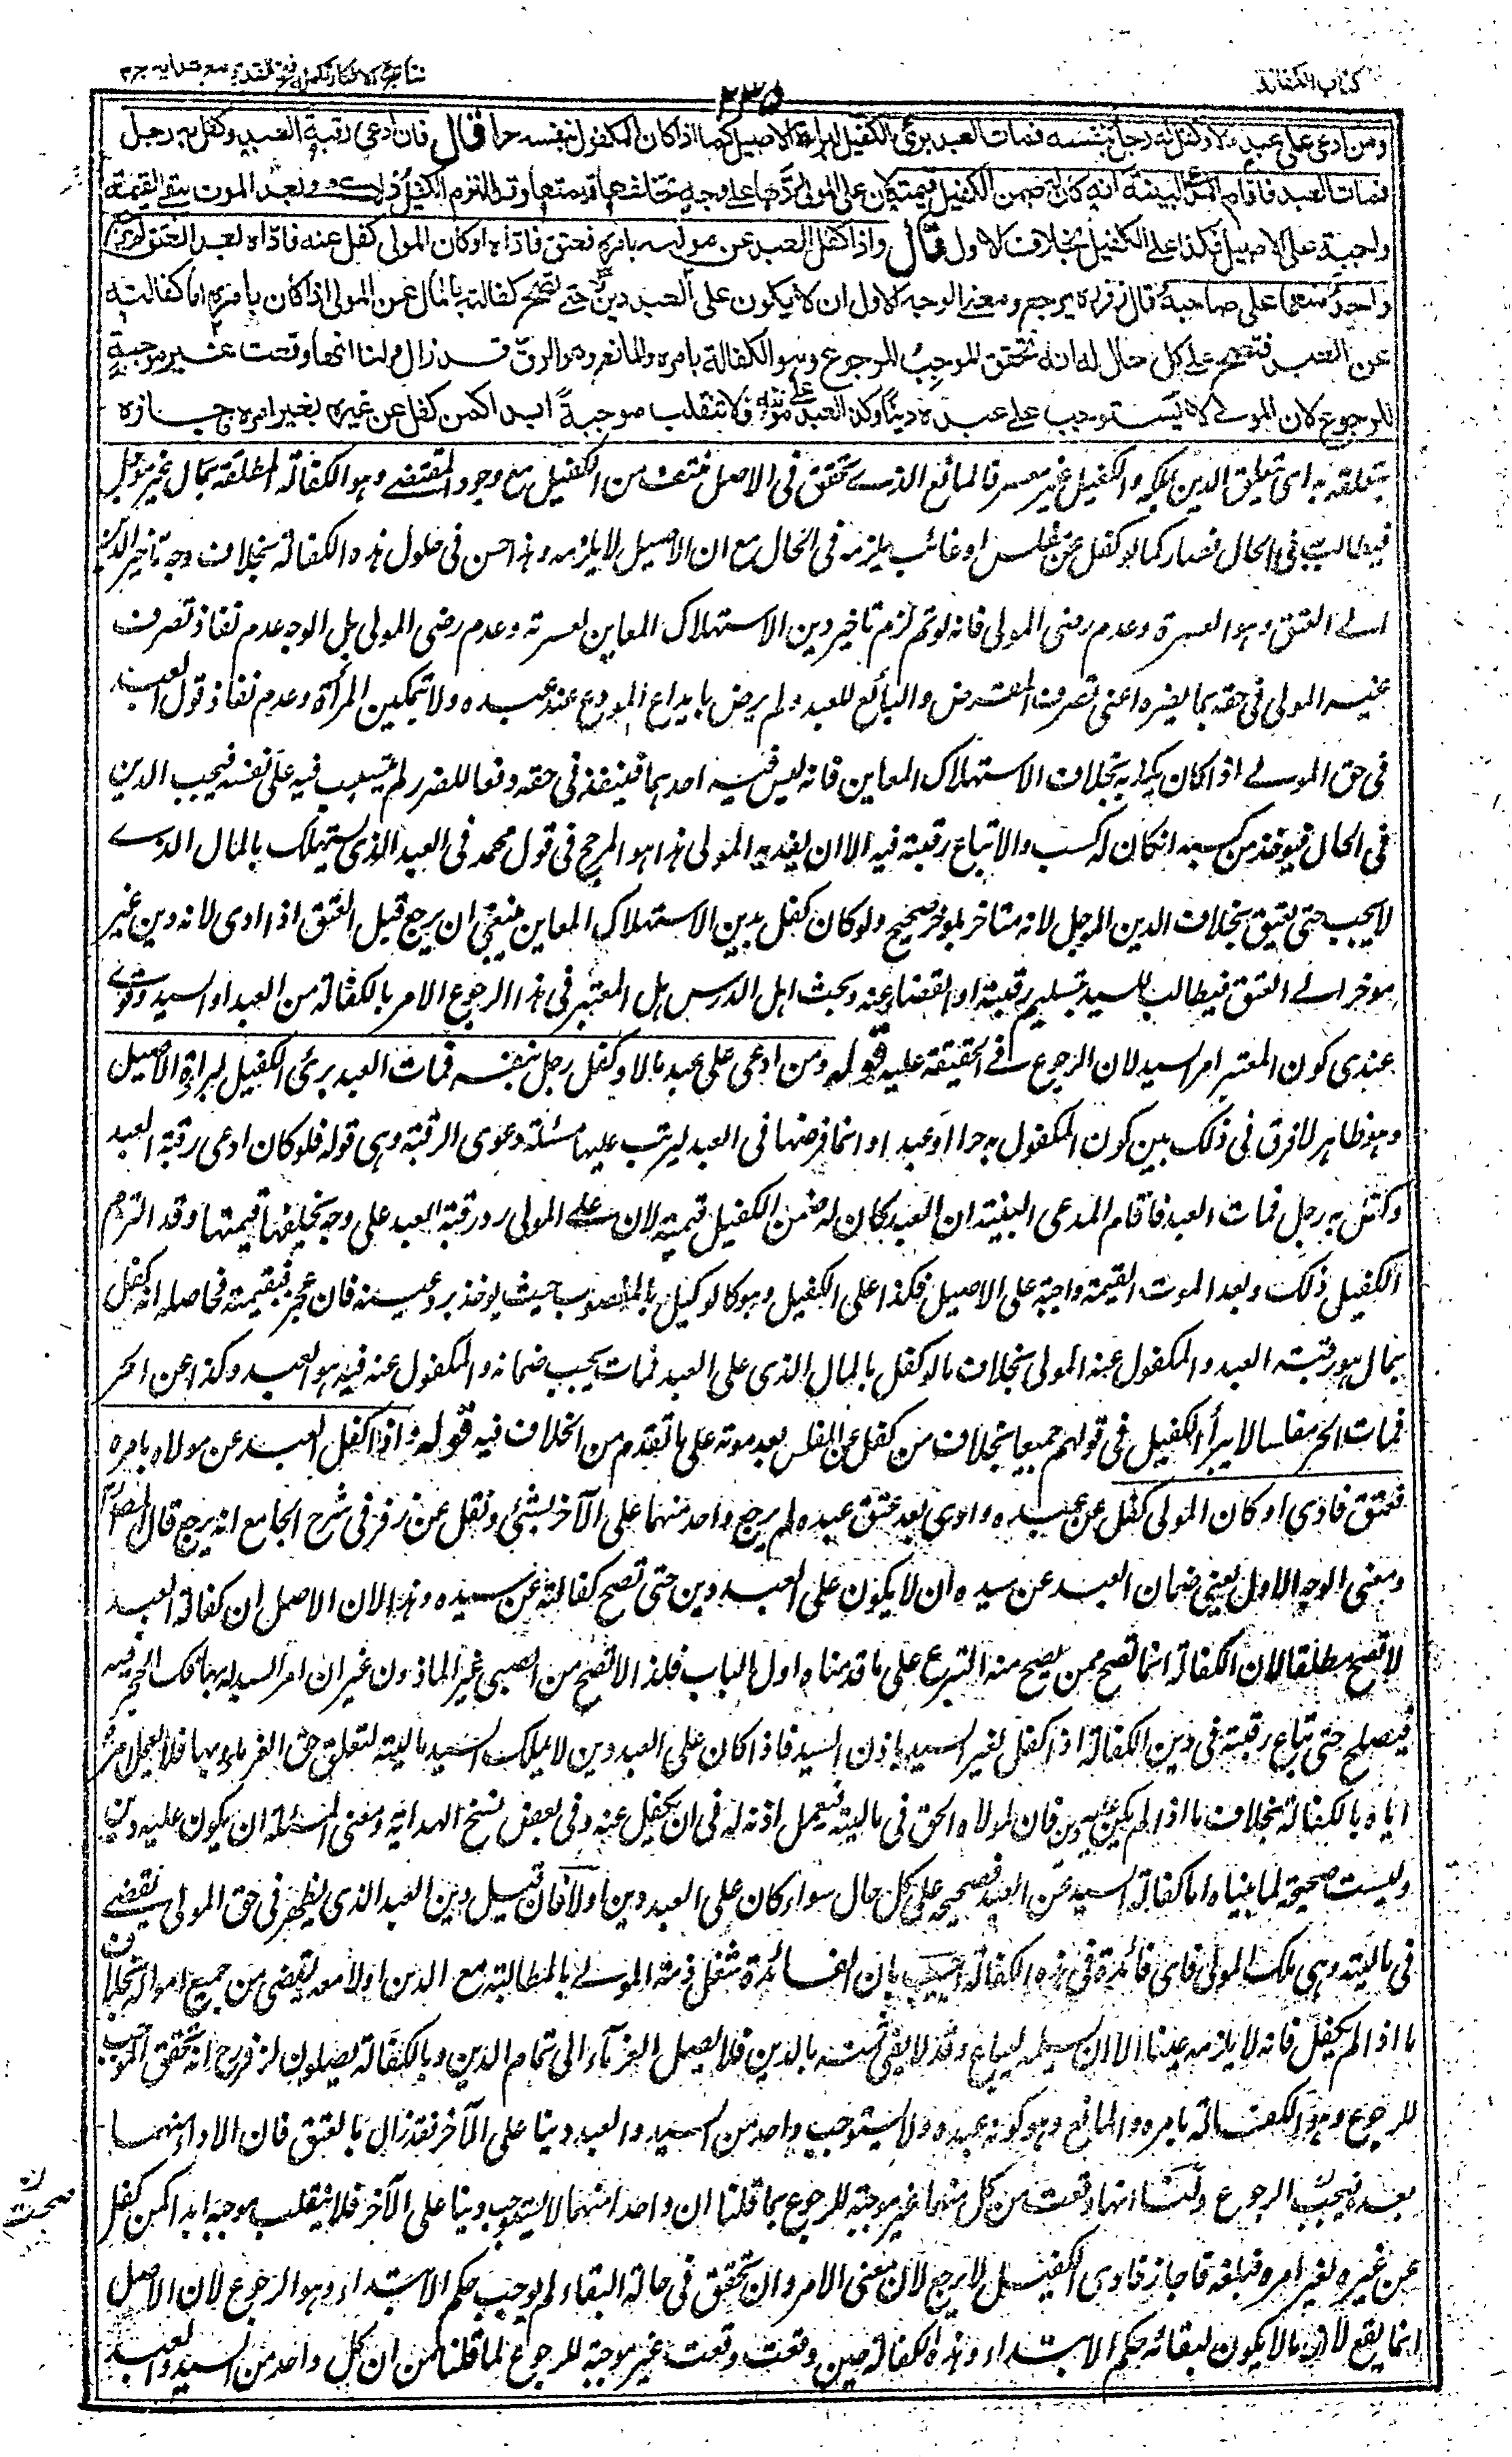 كتاب الكفالة
٢٣٥
نتائج الافكار تكملة فتح القدير مع هداية ج ٣
ومن ادعى على عبد مالا وكفل له رجل بنفسه فمات العبد برئ الكفيل لبراءة الاصيل كما اذا كان المكفول بنفسه حرا قال فان ادعى رقبة العبد وكفل به رجل
فمات العبد فاقام المدعي البينة انه كان له ضمن الكفيل قيمته لان على المولى ردها على وجه تخلفها قيمتها وقد التزم الكفيل ذلك وبعد الموت تبقى القيمة
واجبة على الاصيل فكذا على الكفيل بخلاف الاول قال واذا كفل العبد عن مولاه بامره فعتق فاداه او كان المولى كفل عنه فاداه بعد العتق لم يرجع
واحد منهما على صاحبه قال زفر ره يرجع ومعنى الوجه الاول ان لا يكون على العبد دين حتى تصح كفالته بالمال عن المولى اذا كان بامره اما كفالته
عن العبد فتصح على كل حال له انه تحقق الموجب للرجوع وهو الكفالة بامره والمانع وهو الرق قد زال ولنا انها وقعت غير موجبة
للرجوع لان المولى لا يستوجب على عبده دينا وكذا العبد على مولاه فلا تنقلب موجبة ابدا كمن كفل عن غيره بغير امره فاجازه
يتعلقه به اى تعلق الدين به والكفيل غير معسر فالمانع الذي تحقق فى الاصل منتف من الكفيل مع وجود المقتضى وهو الكفالة المطلقة بمال غير مؤجل
فيطالب به فى الحال فصار كما لو كفل عن مفلس او غائب يلزمه فى الحال مع ان الاصيل لا يلزمه وهذا احسن فى حلول هذه الكفالة بخلاف وجه تاخير الدين
الى العتق وهو العسرة وعدم رضى المولى فانه لو تم لزم تاخير دين الاستهلاك المعاين لعسرته وعدم رضى المولى بل الوجه عدم نفاذ تصرف
غير المولى فى حقه بما يضره اعنى تصرف المقرض والبائع للعبد ولم يرض بايداع المودع عند عبده ولا بتمكين المرأة وعدم نفاذ قول العبد
فى حق المولى اذا كان يكذبه بخلاف الاستهلاك المعاين فانه ليس فيه احدهما فينفذ فى حقه دفعا للضرر لم يتسبب فيه على نفسه فيجب الدين
فى الحال فيؤخذ من كسبه ان كان له كسب والا تباع رقبته فيه الا ان يفديه المولى هذا هو المرجح فى قول محمد فى العبد الذى يستهلك بالمال الذى
لا يجب حتى يعتق بخلاف الدين المؤجل لانه متأخر بمؤخر صحيح ولو كان كفل بدين الاستهلاك المعاين ينبغى ان يرجع قبل العتق اذا ادى لانه دين غير
مؤخر الى العتق فيطالب السيد بتسليم رقبته او القضاء عنه وبحث اهل الدرس هل المعتبر فى هذا الرجوع الامر بالكفالة من العبد او السيد وقوى
عندى كون المعتبر امر السيد لان الرجوع فى الحقيقة عليه قوله ومن ادعى على عبد مالا وكفل رجل بنفسه فمات العبد برئ الكفيل لبراءة الاصيل
وهو ظاهر لا فرق فى ذلك بين كون المكفول به حرا او عبدا وانما فرضها فى العبد ليرتب عليها مسئلة دعوى الرقبة وهى قوله فلو كان ادعى رقبة العبد
وكفل به رجل فمات العبد فاقام المدعى البينة ان العبد كان له ضمن الكفيل قيمته لان على المولى رد رقبة العبد على وجه يخلفها قيمتها وقد التزم
الكفيل ذلك وبعد الموت القيمة واجبة على الاصيل فكذا على الكفيل وهو كالوكيل بالمغصوب حيث يؤخذ برد عينه فان عجز فبقيمته فحاصله انه كفل
بمال هو رقبة العبد والمكفول عنه المولى بخلاف ما لو كفل بالمال الذى على العبد فمات يجب ضمانه والمكفول عنه فيه هو العبد وكذا عن الحر
فمات الحر مفلسا لا يبرأ الكفيل فى قولهم جميعا بخلاف من كفل عن المفلس بعد موته على ما تقدم من الخلاف فيه قوله واذا كفل العبد عن مولاه بامره
فعتق فادى او كان المولى كفل عن عبده وادى بعد عتق عبده لم يرجع واحد منهما على الآخر بشئ ونقل عن زفر فى شرح الجامع انه يرجع قال المصنف
ومعنى الوجه الاول يعنى ضمان العبد عن سيده ان لا يكون على العبد دين حتى تصح كفالته عن سيده وهذا لان الاصل ان كفالة العبد
لا تصح مطلقا لان الكفالة انما تصح ممن يصح منه التبرع على ما قدمناه اول الباب فلذا لا تصح من الصبى غير الماذون غير ان امر السيد له بها فك الحجر فيه
فيصلح حتى تباع رقبته فى دين الكفالة اذا كفل لغير السيد باذن السيد فاذا كان على العبد دين لا يملك السيد ماليته لتعلق حق الغرماء بها فلا يعمل امره
اياه بالكفالة بخلاف ما اذا لم يكن عليه دين فان لمولاه الحق فى ماليته فيعمل اذنه له فى ان يكفل عنه وفى بعض نسخ الهداية ومعنى المسئلة ان يكون عليه دين
وليست صحيحة لما بيناه اما كفالة السيد عن العبد فصحيحة على كل حال سواء كان على العبد دين اولا فان قيل دين العبد الذى يظهر فى حق المولى يقضى
فى ماليته وهى ملك المولى فاى فائدة فى هذه الكفالة اجيب بان الفائدة شغل ذمة المولى بالمطالبة مع الدين اولا معه ليقضى من جميع امواله بخلاف
ما اذا لم يكفل فانه لا يلزمه عينا الا ان يسلمه ليباع وقد لا يفى ثمنه بالدين فلا يصل الغرماء الى تمام الدين وبالكفالة يصلون لزفر رح انه تحقق الموجب
للرجوع وهو الكفالة بامره والمانع وهو كونه عبده ولا يستوجب واحد من السيد والعبد دينا على الآخر فقد زال بالعتق فان الاداء منهما
بعده فيجب الرجوع ولنا انها وقعت من كل منهما غير موجبة للرجوع بما قلنا ان واحدا منهما لا يستوجب دينا على الآخر فلا ينقلب موجبة ابدا كمن كفل
عن غيره بغير امره فبلغه فاجاز فادى الكفيل لا يرجع لان معنى الامر وان تحقق فى حالة البقاء لم يوجب حكم الابتداء وهو الرجوع لان الاصل
انما يقع لان ما لا يكون لبقائه حكم الابتداء وهذه الكفالة حين وقعت وقعت غير موجبة للرجوع لما قلنا من ان كل واحد من السيد والعبد